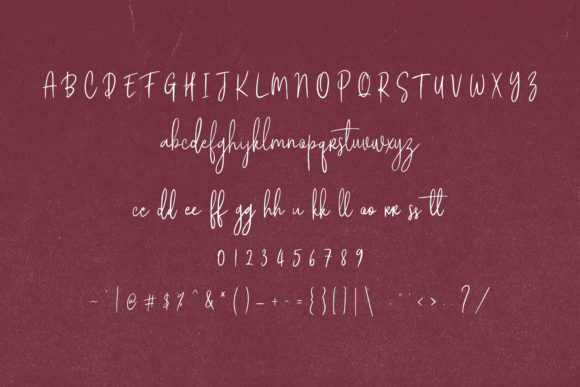 ABCDEFGHIJKLMNOPQRSTUVWXYZ
abcdefghijklmnopqrstuvwxyz
cc dd ee ff gg hh ii kk ll oo rr ss tt
0123456789
~`|@#$%^&*()_+-={}[]|\:;"'<>,.?/